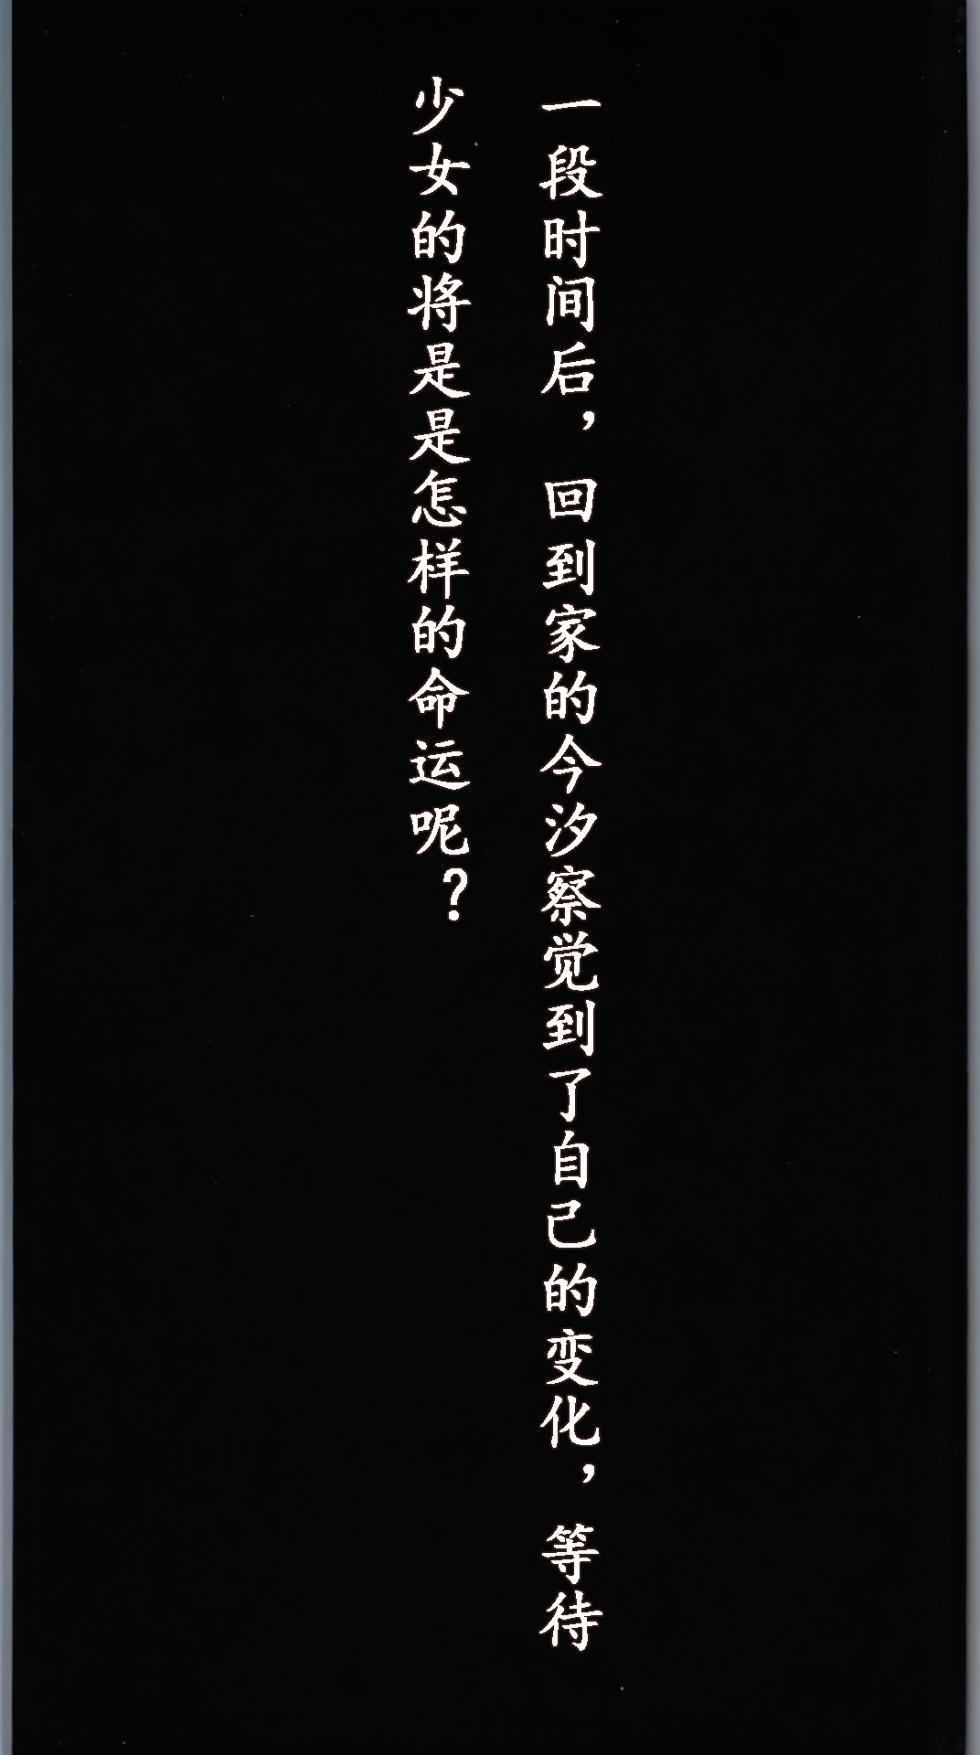 一段时间后，回到家的今汐察觉到了自己的变化，等待
少女的将是是怎样的命运呢？